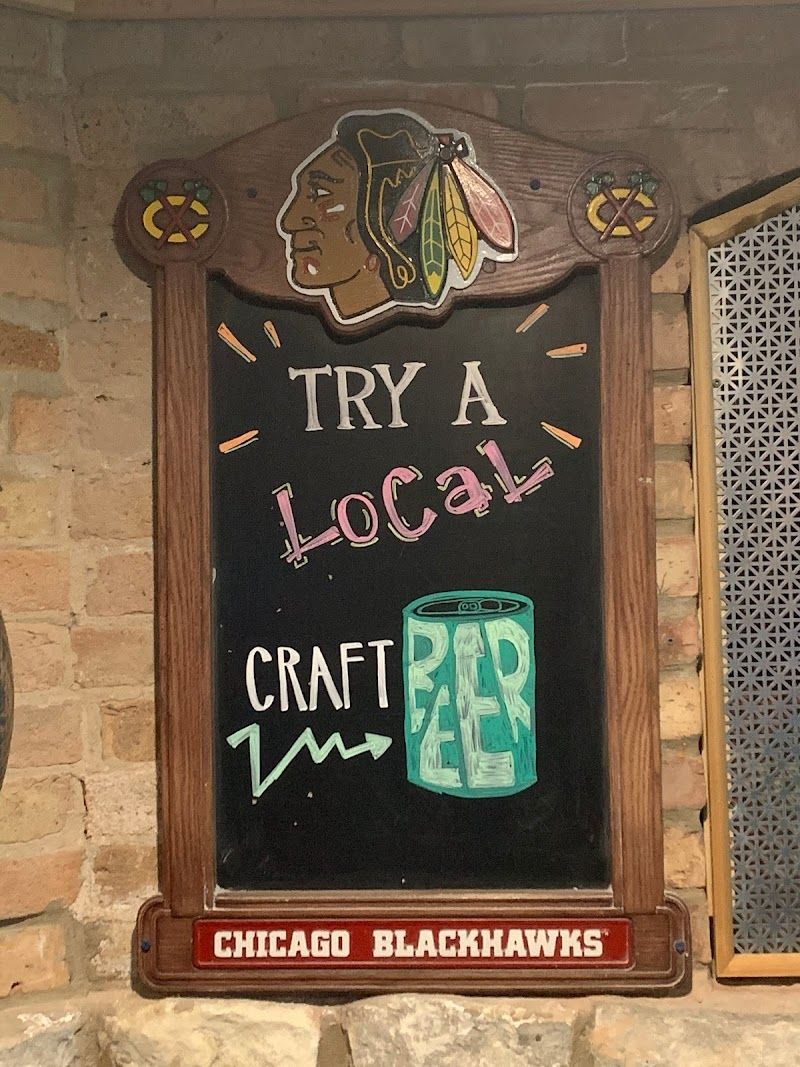 TRY A
LoCaL
CRAFT
BEER
CHICAGO BLACKHAWKS